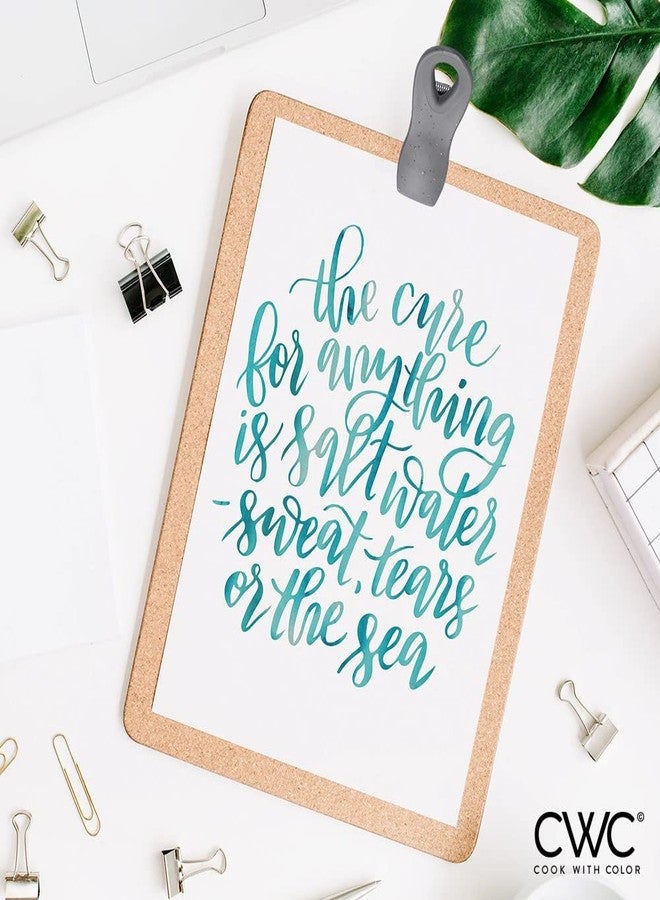 the cure
for anything
is salt water
-sweat, tears
or the sea
CWC©
COOK WITH COLOR